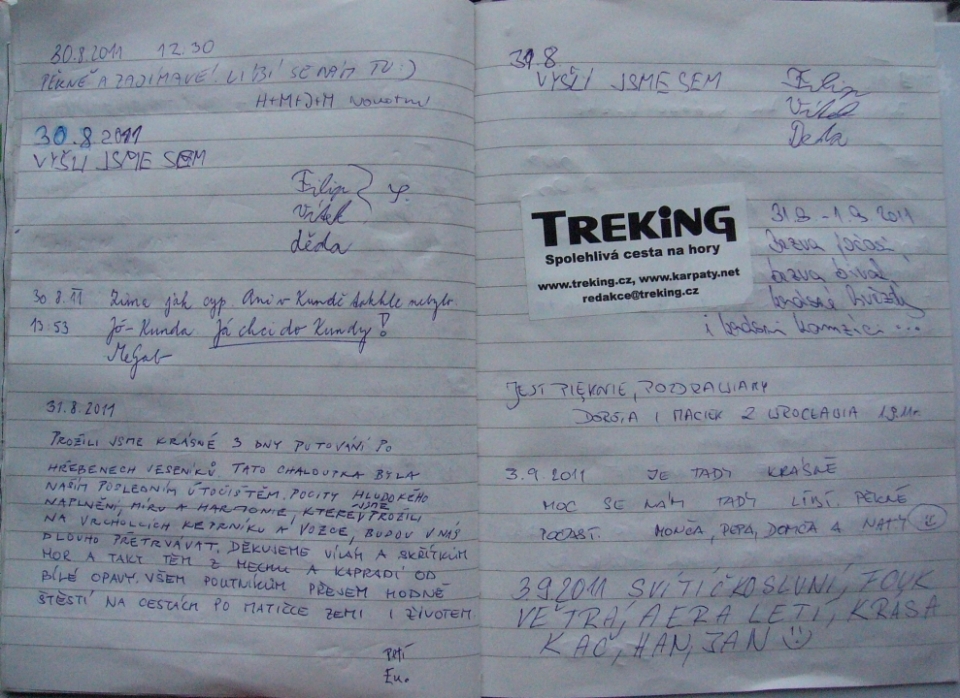 30.8.2011 12.30
PĚKNÉ A ZAJÍMAVÉ! LÍBÍ SE NÁM TU :)
H+M+J+M Novotní
30.8.2011
VYŠLI JSME SEM
Filip
Vítek
děda
30.8.11 Zima jak cyp. Ani v Kundě takhle nebylo.
13:53 Jó-Kunda Já chci do Kundy!
31.8.2011
PROŽILI JSME KRÁSNÉ 3 DNY PUTOVÁNÍ PO
HŘEBENECH JESENÍKŮ. TATO CHALOUPKA BYLA
NAŠÍM POSLEDNÍM ÚTOČIŠTĚM. POCITY HLUBOKÉHO
NAPLNĚNÍ, MÍRU A HARMONIE, KTERÉ JSME PROŽILI
NA VRCHOLCÍCH KEPRNÍKU A VOZCE, BUDOU V NÁS
DLOUHO PŘETRVÁVAT. DĚKUJEME VÍLÁM A SKŘÍTKŮM
HOR A TAKY TĚM Z MECHU A KAPRADÍ OD
BÍLÉ OPAVY. VŠEM POUTNÍKŮM PŘEJEM HODNĚ
ŠTĚSTÍ NA CESTÁCH PO MATIČCE ZEMI I ŽIVOTEM
31.8
VYŠLI JSME SEM
Filip
Vítek
Deda
TREKING
Spolehlivá cesta na hory
www.treking.cz, www.karpaty.net
redakce@treking.cz
31.8. - 1.9. 2011
bezva počasí
bezva bivak
krásné hvězdy
i krásní kamzíci ...
JEST PIĘKNIE, POZDRAWIAMY
DOROTA I MACIEK Z WROCŁAWIA 1.9.11r.
3.9.2011 JE TADY KRÁSNĚ
MOC SE NÁM TADY LÍBÍ. PĚKNÉ
POČASÍ. MONČA, PEPA, DOMČA A NATY
3.9.2011 SVÍTÍČKO SLUNÍ, FOUK
VĚTRÁ, AERA LETÍ, KRÁSA
KAČ, HAN, JAN